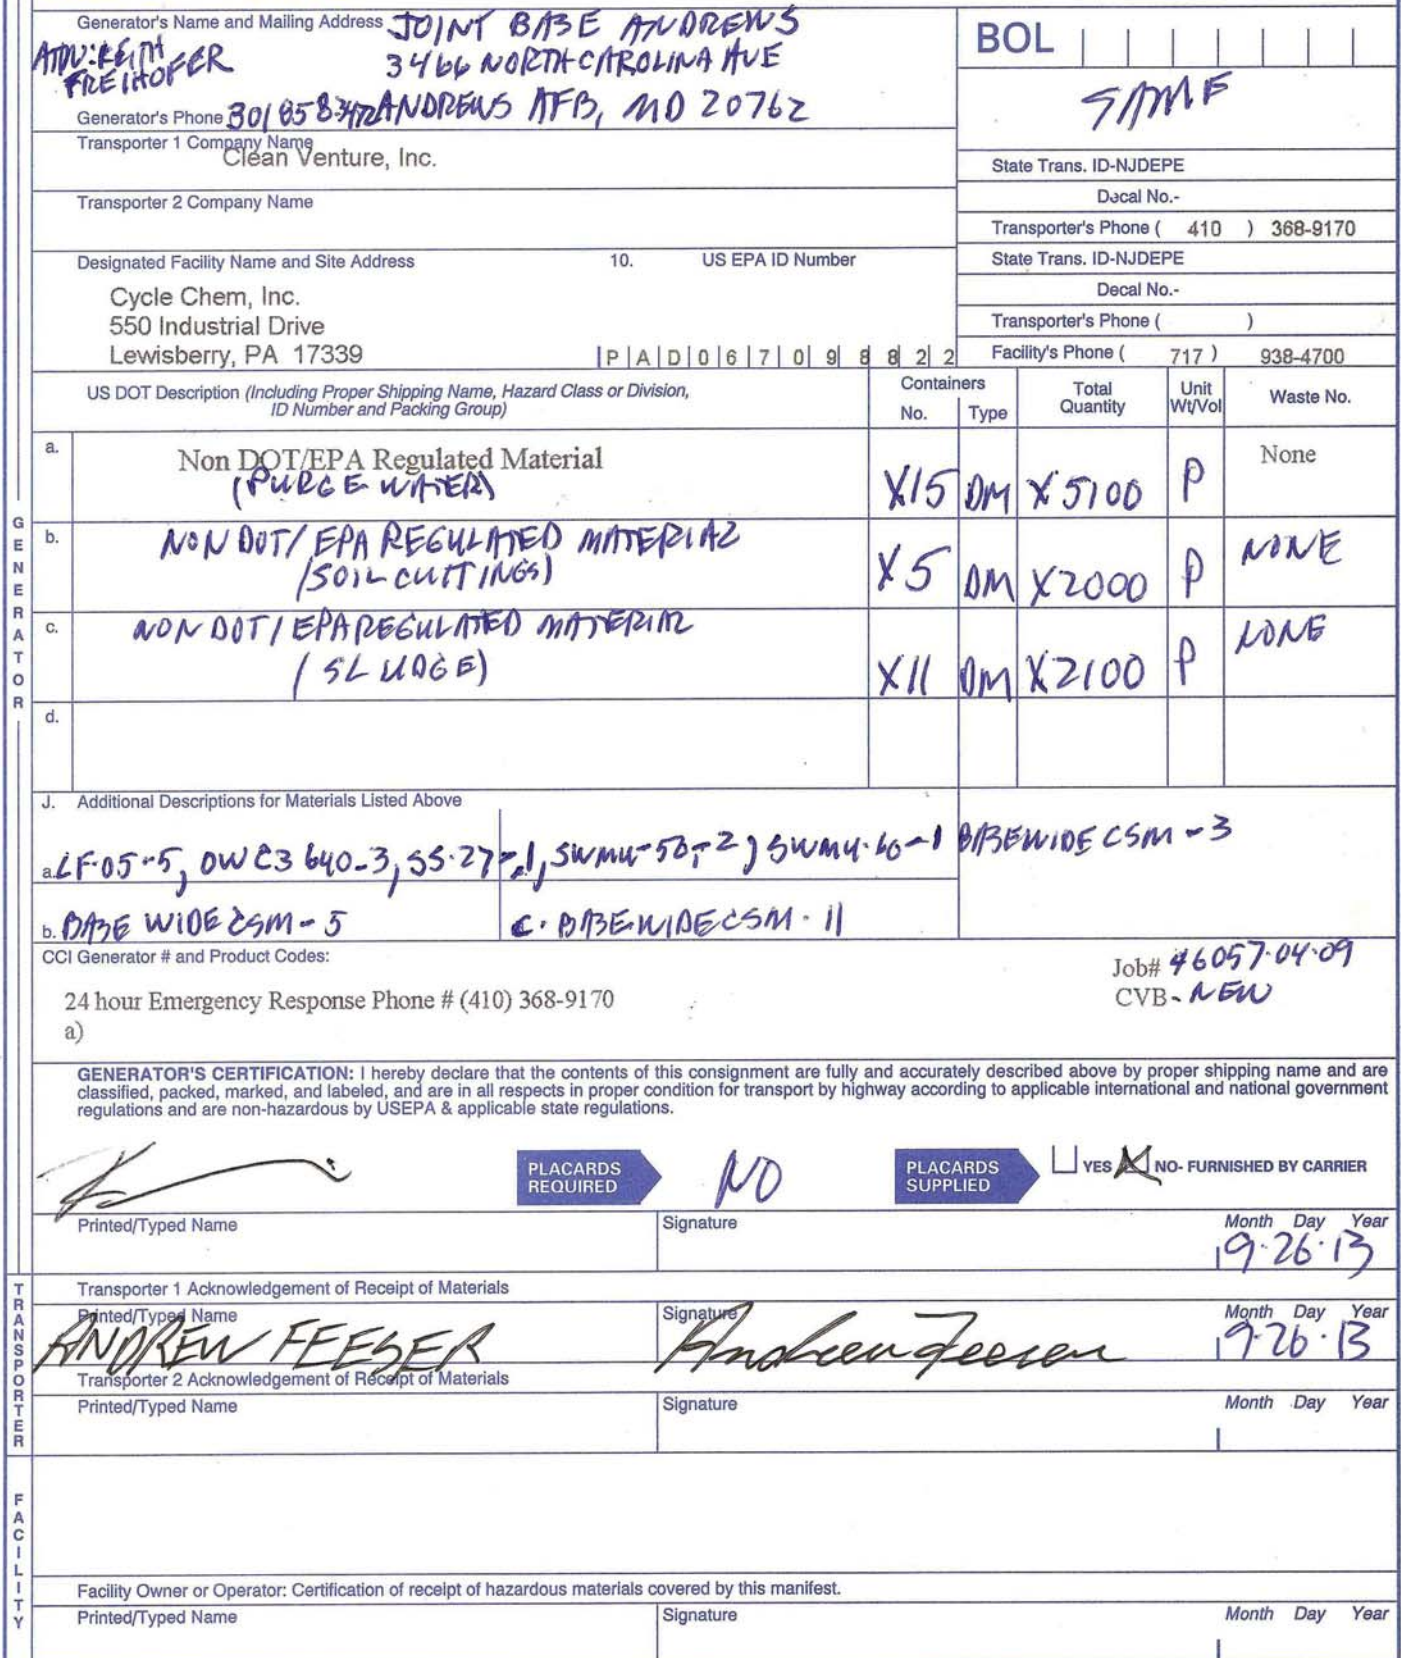 Generator's Name and Mailing Address JOINT BASE ANDREWS
ATTN: KEITH
FREIHOFER 3466 NORTH CAROLINA AVE
Generator's Phone ANDREWS AFB, MD 20762
BOL
SAME
Transporter 1 Company Name
Clean Venture, Inc.
State Trans. ID-NJDEPE
Decal No.-
Transporter 2 Company Name
Transporter's Phone ( 410 ) 368-9170
Designated Facility Name and Site Address 10. US EPA ID Number
State Trans. ID-NJDEPE
Cycle Chem, Inc.
Decal No.-
550 Industrial Drive
Transporter's Phone ( )
Lewisberry, PA 17339 |P|A|D|0|6|7|0|9|8|8|2|2
Facility's Phone ( 717 ) 938-4700
US DOT Description (Including Proper Shipping Name, Hazard Class or Division,
ID Number and Packing Group)
Containers
No. Type
Total
Quantity
Unit
Wt/Vol
Waste No.
a. Non DOT/EPA Regulated Material
(PURGE WATER) X15 DM X5100 P None
b. NON DOT/EPA REGULATED MATERIAL
(SOIL CUTTINGS) X5 DM X2000 P NONE
c. NON DOT/EPA REGULATED MATERIAL
(SLUDGE) X11 DM X2100 P NONE
d.
J. Additional Descriptions for Materials Listed Above
a. LF-05-5, OWC3640-3, SS-27-1, SWMU-50-2, SWMU-60-1 BASEWIDE CSM-3
b. BASE WIDE CSM-5 C. BASEWIDE CSM-11
CCI Generator # and Product Codes:
Job# 46057-04-09
24 hour Emergency Response Phone # (410) 368-9170
CVB- NEW
a)
GENERATOR'S CERTIFICATION: I hereby declare that the contents of this consignment are fully and accurately described above by proper shipping name and are
classified, packed, marked, and labeled, and are in all respects in proper condition for transport by highway according to applicable international and national government
regulations and are non-hazardous by USEPA & applicable state regulations.
PLACARDS
REQUIRED
NO
PLACARDS
SUPPLIED
YES NO- FURNISHED BY CARRIER
Printed/Typed Name Signature Month Day Year
9-26-13
Transporter 1 Acknowledgement of Receipt of Materials
Printed/Typed Name Signature Month Day Year
ANDREW FEESER Andrew Feeser 9-26-13
Transporter 2 Acknowledgement of Receipt of Materials
Printed/Typed Name Signature Month Day Year
Facility Owner or Operator: Certification of receipt of hazardous materials covered by this manifest.
Printed/Typed Name Signature Month Day Year
GENERATOR
TRANSPORTER
FACILITY